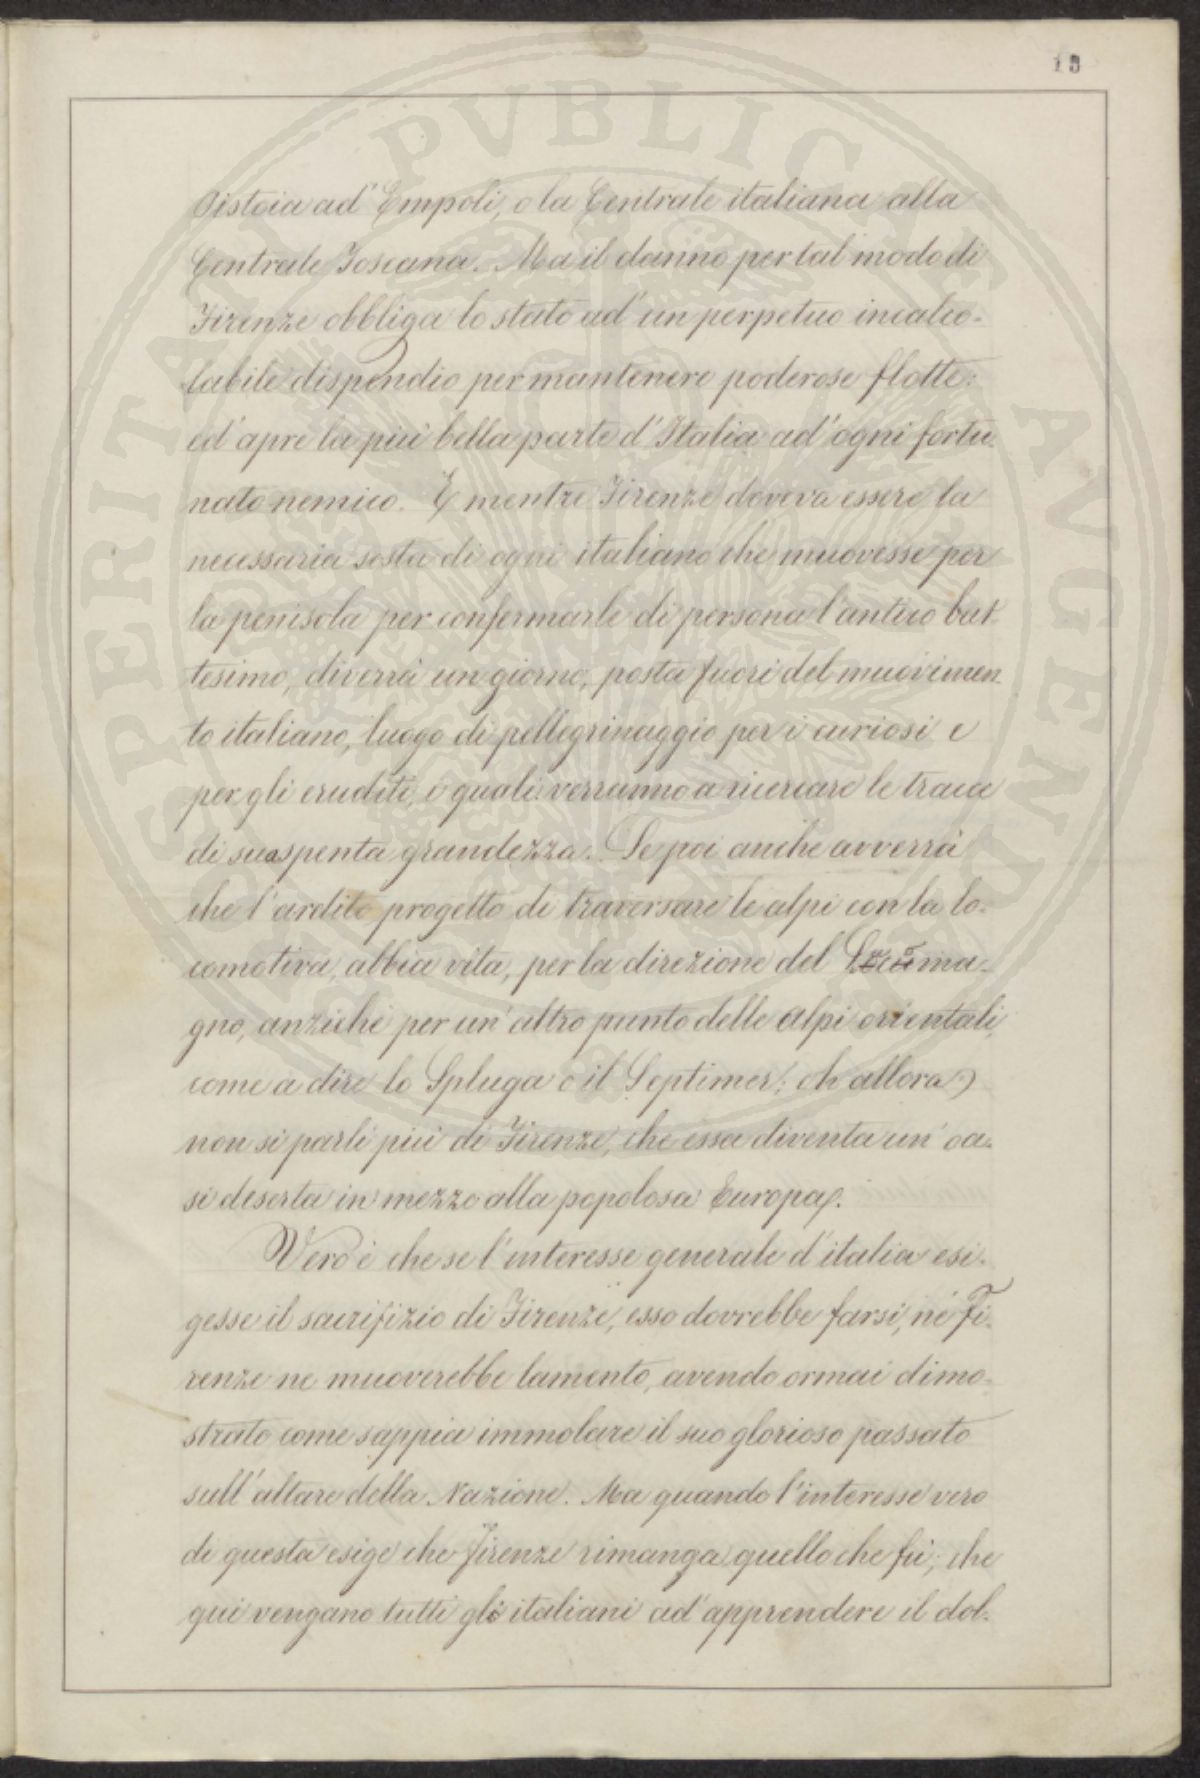 13
Pistoia ad' Empoli, o la Centrale italiana alla
Centrale Toscana. Ma il danno per tal modo di
Firenze obbliga lo stato ad' un perpetuo incalco-
labile dispendio per mantenere poderose flotte:
ed' apre la più bella parte d'Italia ad' ogni fortu-
nato nemico. E mentre Firenze doveva essere la
necessaria sosta di ogni italiano che muovesse per
la penisola per confermarle di persona l'antico bat-
tesimo, diverrà un giorno, posta fuori del muovimen-
to italiano, luogo di pellegrinaggio per i curiosi e
per gli eruditi, i quali verranno a ricercare le tracce
di sua spenta grandezza. Se poi anche avverrà
che l'ardito progetto di traversare le alpi con la lo-
comotiva, abbia vita, per la direzione del Lucoma-
gno, anziché per un' altro punto delle alpi orientali,
come a dire lo Spluga o il Septimer; oh allora
non si parli più di Firenze, che essa diventa un' oa-
si deserta in mezzo alla popolosa Europa.
Vero è che se l'interesse generale d'italia esi-
gesse il sacrifizio di Firenze, esso dovrebbe farsi, né Fi-
renze ne muoverebbe lamento, avendo ormai dimo-
strato come sappia immolare il suo glorioso passato
sull'altare della Nazione. Ma quando l'interesse vero
di questa esige che Firenze rimanga quello che fù; che
qui vengano tutti gli italiani ad' apprendere il dol-
PROSPERITATI PVBLICAE AVGENDAE